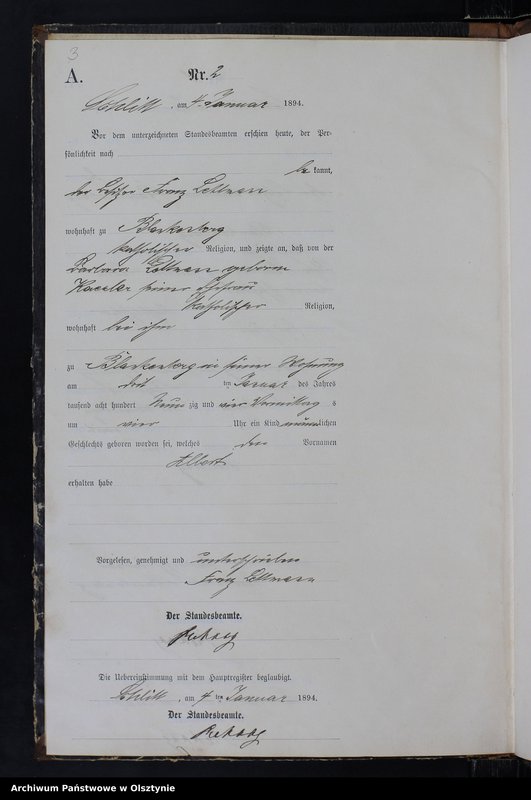 3
A. Nr. 2
Schlitt, am 4. Januar 1894.
Vor dem unterzeichneten Standesbeamten erschien heute, der Per-
sönlichkeit nach
be kannt,
der Besitzer Franz Lettmann
wohnhaft zu Blankenberg
katholischer Religion, und zeigte an, daß von der
Barbara Lettmann geborene
seiner Ehefrau
katholischer Religion,
wohnhaft bei ihm
zu Blankenberg in seiner Wohnung
am drei ten Januar des Jahres
tausend acht hundert neun zig und vier Vormittag s
um vier Uhr ein Kind männlichen
Geschlechts geboren worden sei, welches den Vornamen
Albert
erhalten habe
Vorgelesen, genehmigt und unterschrieben
Franz Lettmann
Der Standesbeamte.
Die Uebereinstimmung mit dem Hauptregister beglaubigt.
Schlitt, am 4 ten Januar 1894.
Der Standesbeamte.
Archiwum Państwowe w Olsztynie